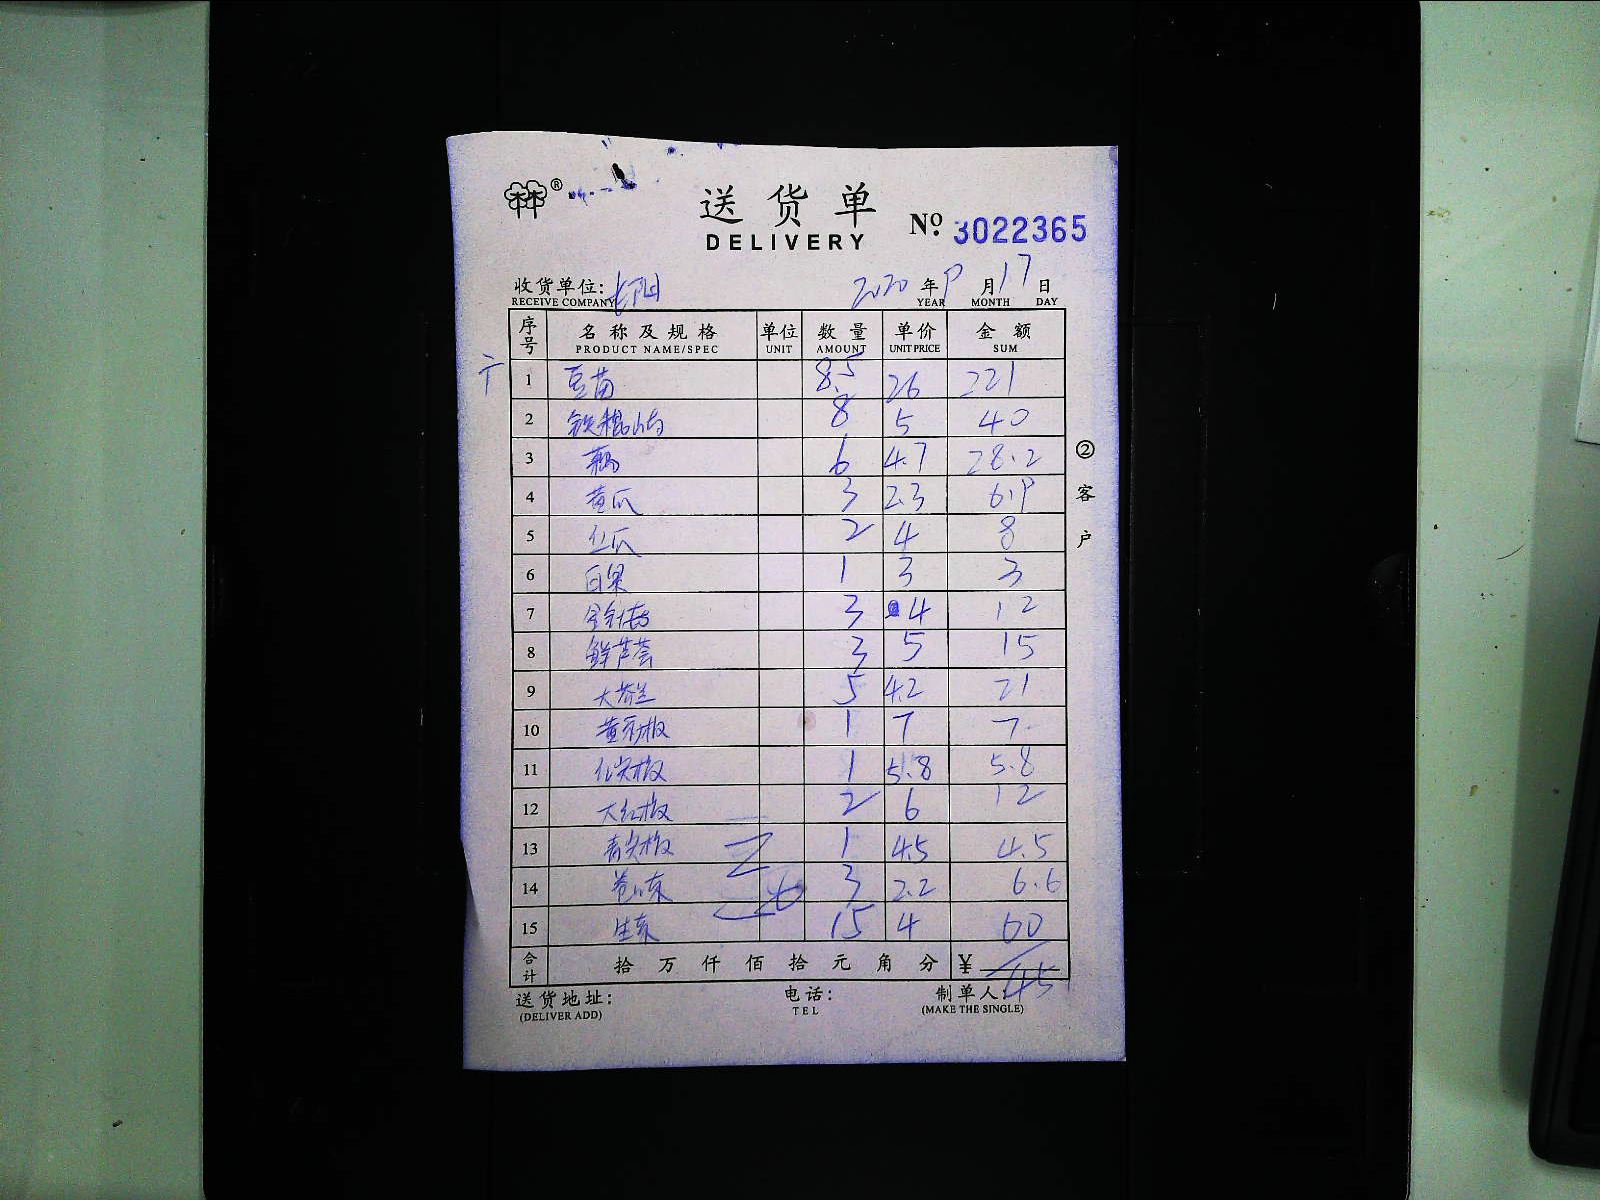 林 ®
送货单
DELIVERY
No. 3022365
收货单位: 2020 年 9 月 17 日
RECEIVE COMPANY YEAR MONTH DAY
序号 名称及规格 单位 数量 单价 金额
PRODUCT NAME/SPEC UNIT AMOUNT UNIT PRICE SUM
1 豆苗 8.5 26 221
2 铁棍山药 8 5 40
3 6 4.7 28.2
4 黄瓜 3 2.3 6.9
5 瓜 2 4 8
6 白果 1 3 3
7 3 4 12
8 鲜芦荟 3 5 15
9 大芥兰 5 4.2 21
10 黄彩椒 1 7 7
11 尖椒 1 5.8 5.8
12 大红椒 2 6 12
13 青尖椒 1 4.5 4.5
14 3 2.2 6.6
15 生菜 15 4 60
合计 拾 万 仟 佰 拾 元 角 分 ¥
送货地址: 电话: 制单人:
(DELIVER ADD) TEL (MAKE THE SINGLE)
②客户